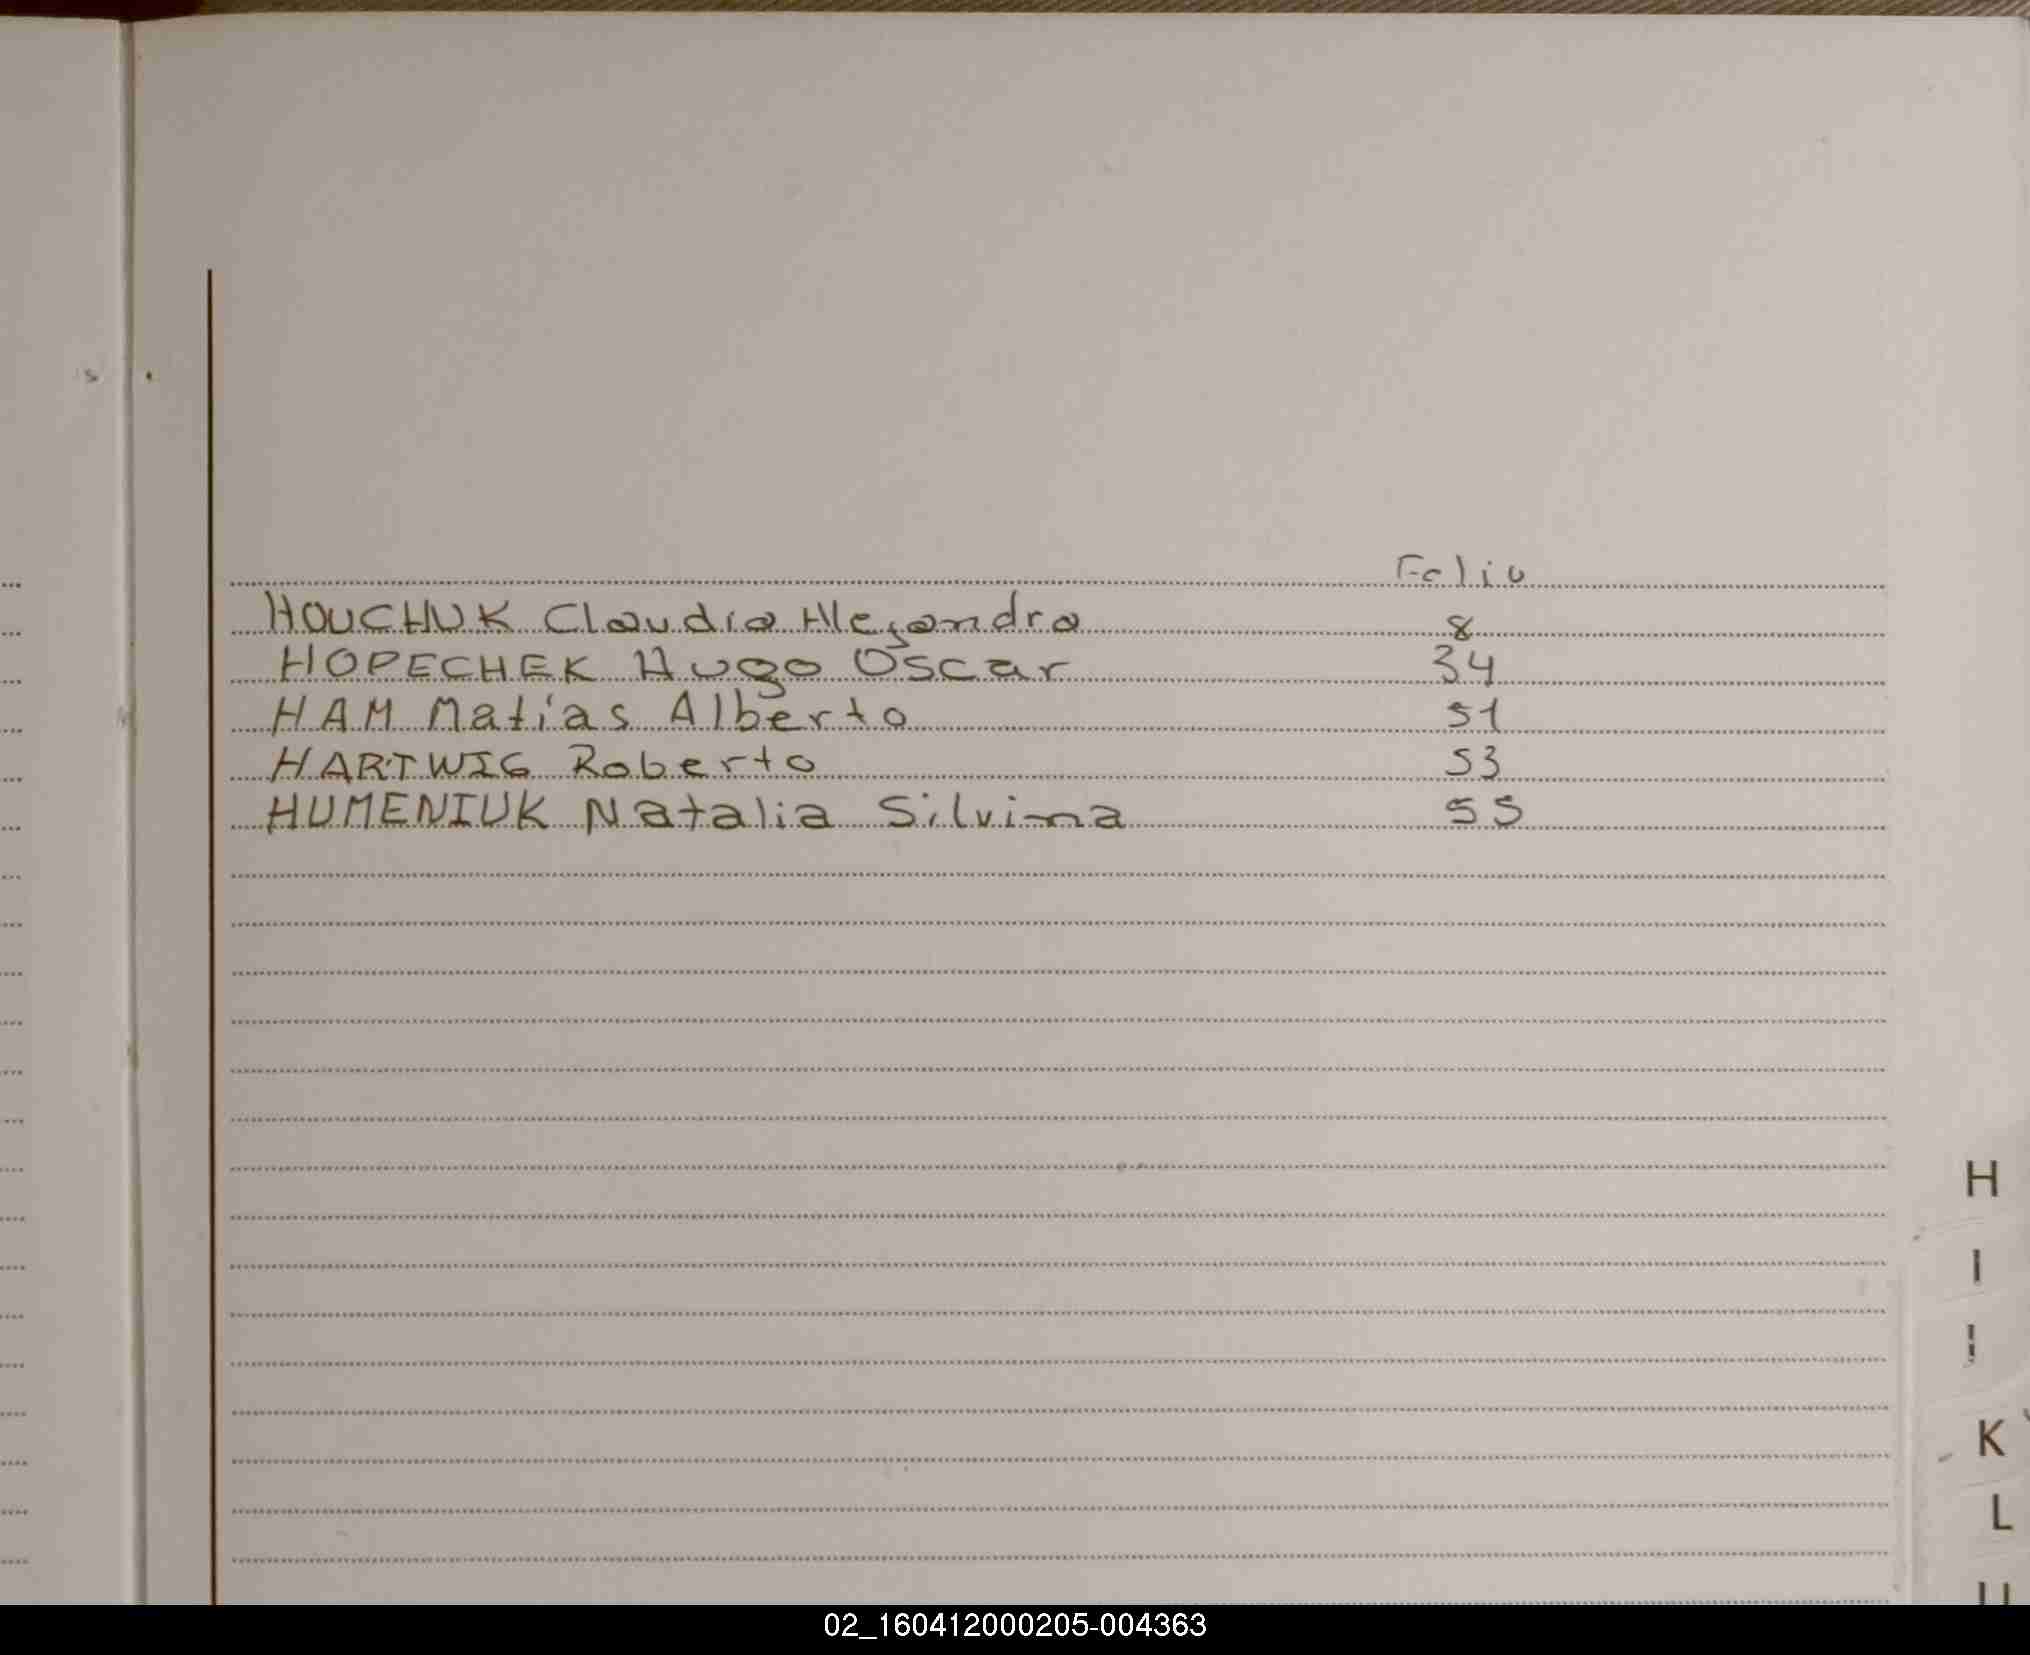 Folio
HOUCHUK Claudia Alejandra 8
HOPECHEK Hugo Oscar 34
HAM Matías Alberto 51
HARTWIG Roberto 53
HUMENIUK Natalia Silvina 55
H
I
J
K
L
02_160412000205-004363